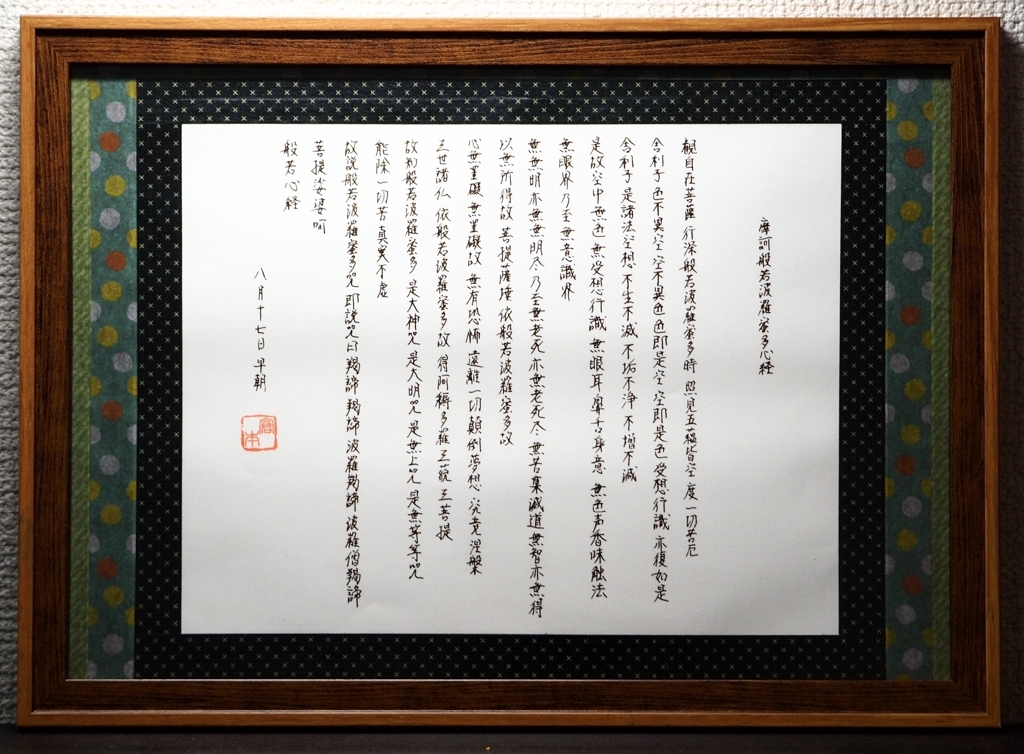 摩訶般若波羅蜜多心経
観自在菩薩 行深般若波羅蜜多時 照見五蘊皆空 度一切苦厄
舎利子 色不異空 空不異色 色即是空 空即是色 受想行識 亦復如是
舎利子 是諸法空想 不生不滅 不垢不浄 不増不減
是故空中 無色 無受想行識 無眼耳鼻舌身意 無色声香味触法
無眼界乃至無意識界
無無明亦無無明尽 乃至無老死 亦無老死尽 無苦集滅道 無智亦無得
以無所得故 菩提薩埵 依般若波羅蜜多故
心無罣礙 無罣礙故 無有恐怖 遠離一切顛倒夢想 究竟涅槃
三世諸仏 依般若波羅蜜多故 得阿耨多羅三藐三菩提
故知般若波羅蜜多 是大神呪 是大明呪 是無上呪 是無等等呪
能除一切苦 真実不虚
故説般若波羅蜜多呪 即説呪曰 羯諦 羯諦 波羅羯諦 波羅僧羯諦
菩提娑婆呵
般若心経
八月十七日 早朝